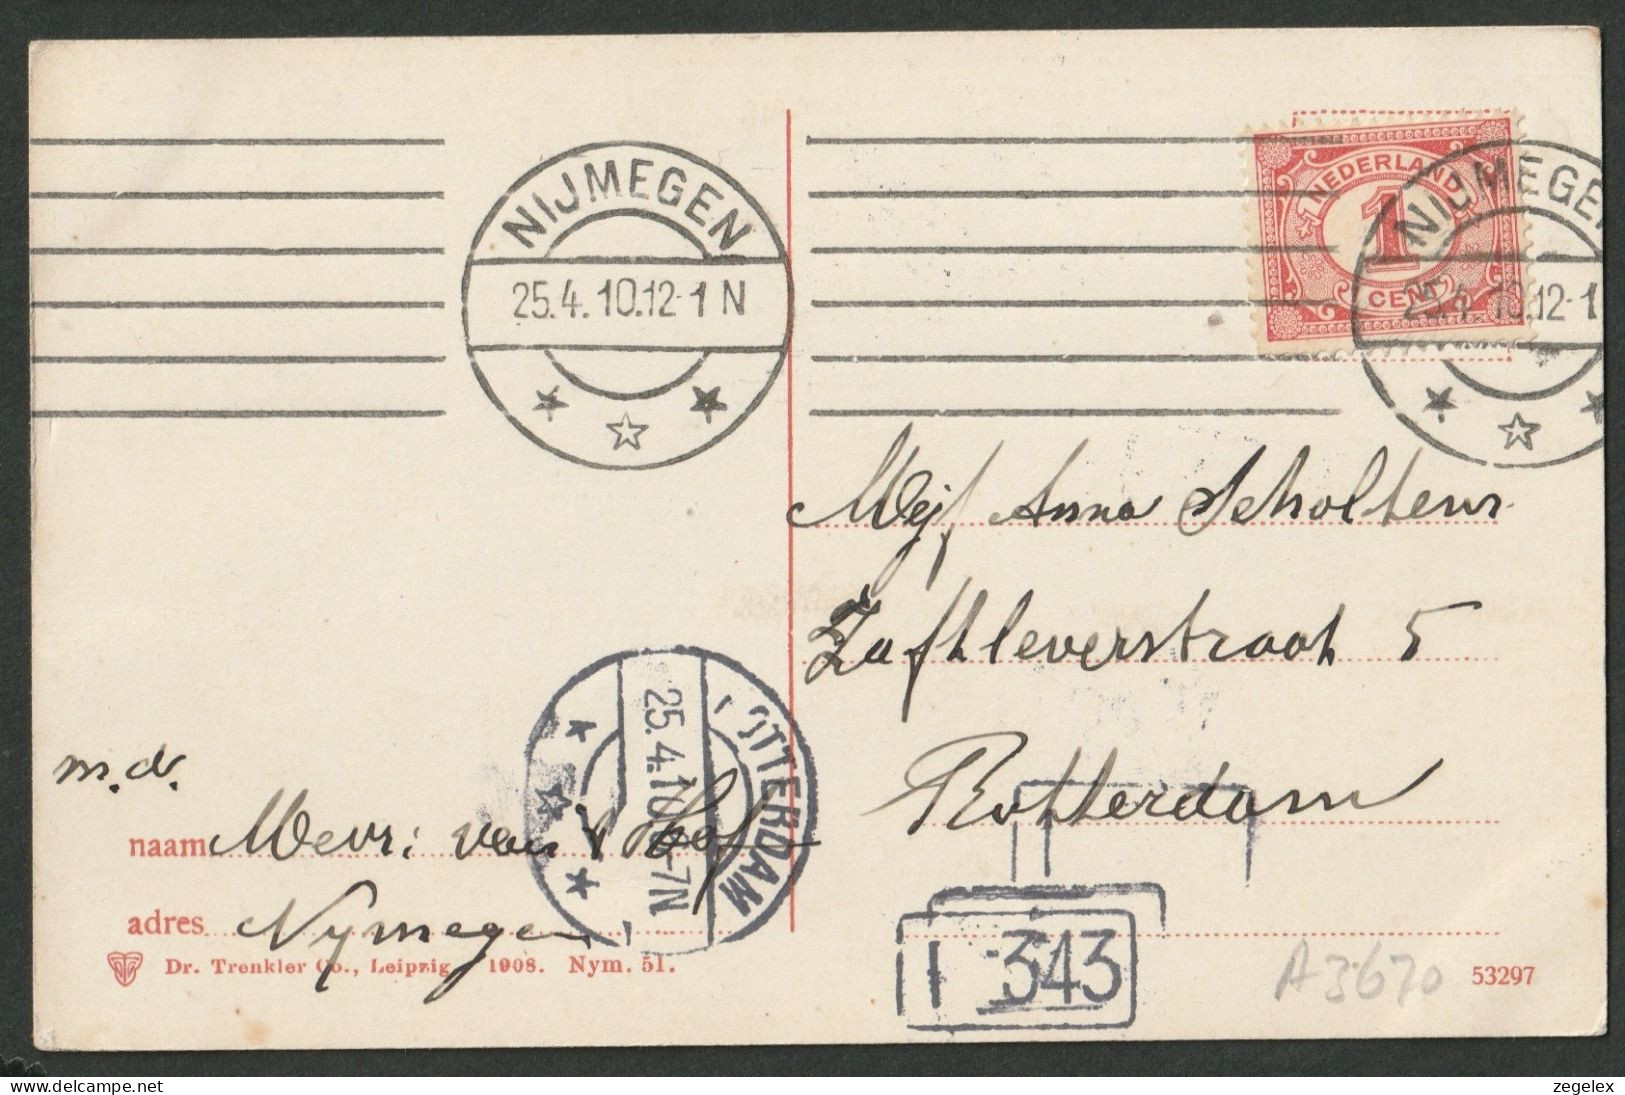 NIJMEGEN
25.4.10.12-1 N
NEDERLAND
1
CENT
NIJMEGEN
25.4.10.12-1
Mejf Anna Scholtens
Zaftleverstraat 5
Rotterdam
ROTTERDAM
25.4.10 6-7N
m.d.
naam Mevr: van 't Hof
adres Nymegen
Dr. Trenkler Co., Leipzig 1908. Nym. 51.
1 343
A3670
53297
zegelex